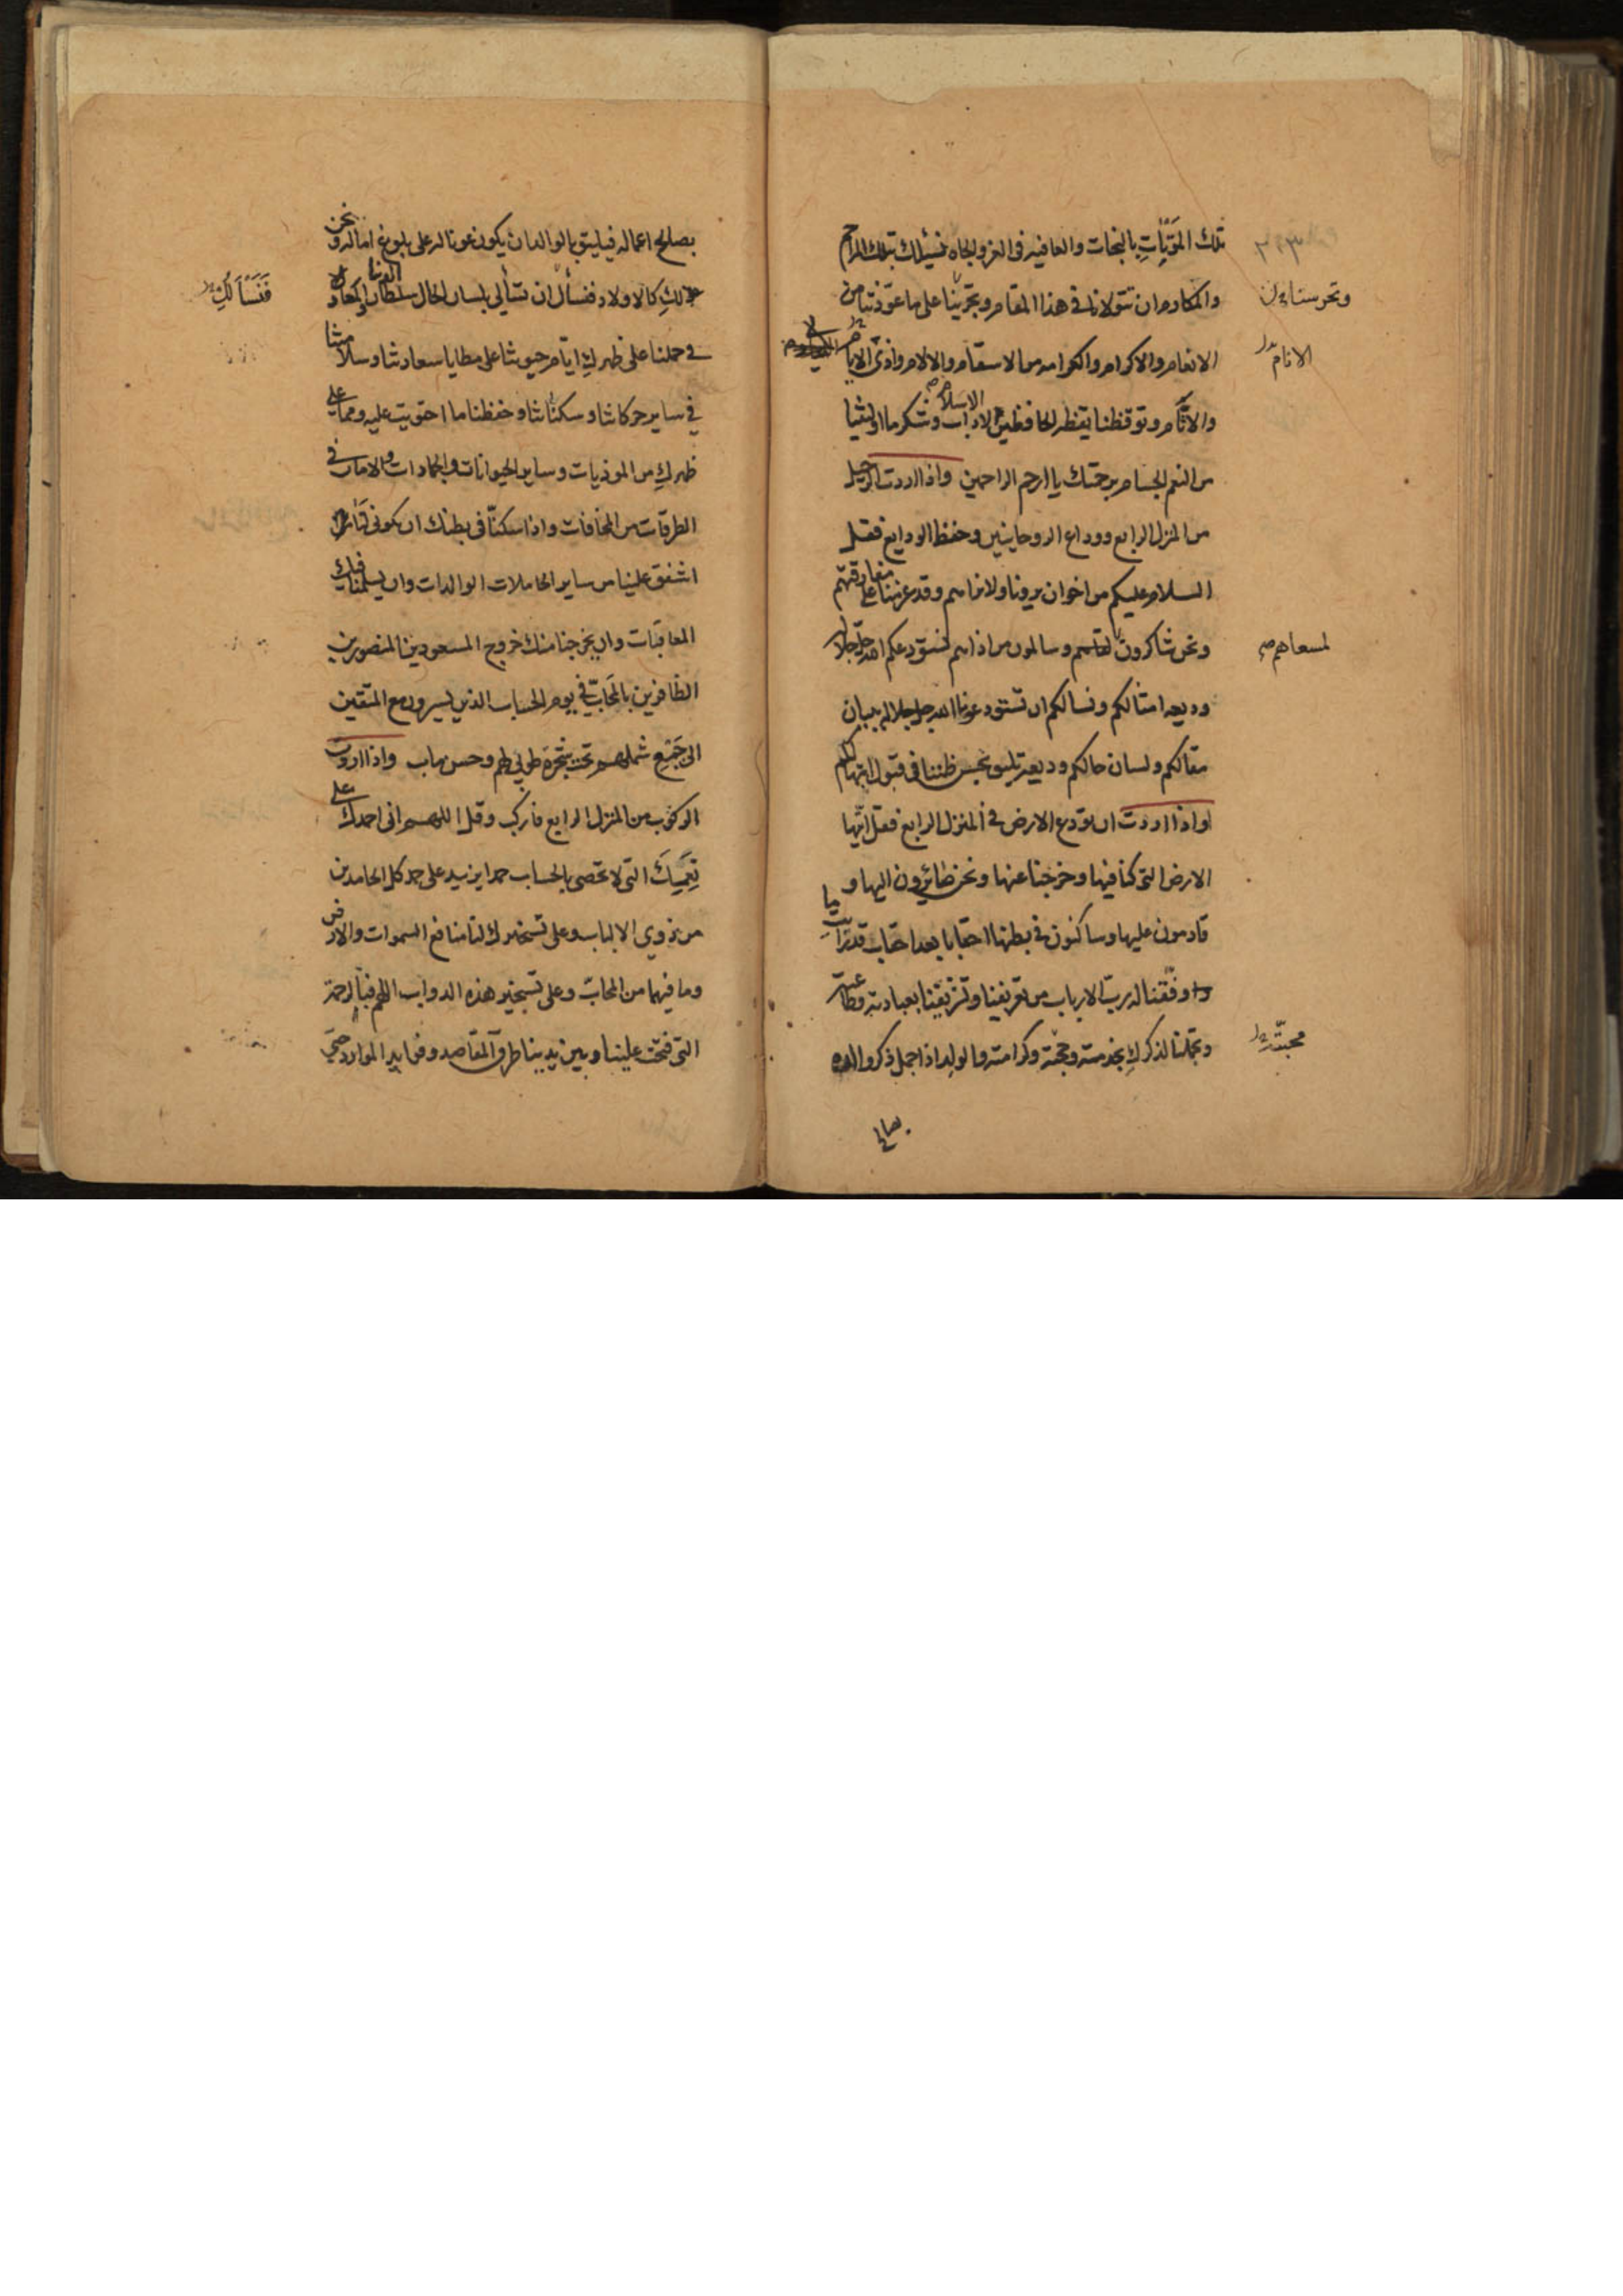 تلك المؤبات بالنجات والعافيه في العز والجاه فنسئلك بتلك المراحم
والمكارم ان تتولانا في هذا المقام وتجرينا على ما عودتنا من
الانعام والاكرام والكرامه من الاسقام والالام واذى الانام
والاثام وتوقظنا يقظه الحافظين لاداب الاسلام وشكر ما اوليتنا
من النعم الجسام برحمتك يا ارحم الراحمين واذا اردت الرحيل
من المنزل الرابع ووداع الروحانيين وحفظ الودايع فقل
السلام عليكم من اخوان يرونا ولا نراهم وقد عزمنا على مفارقتهم
ونحن شاكرون لمقامهم وسالمون من اذاهم نستودعكم الله جل جلاله
وديعه امثالكم ونسالكم ان تستودعونا الله جل جلاله بلسان
مقالكم ولسان حالكم وديعة تليق بحسن ظننا في قبول ابتهالكم
واذا اردت ان تودع الارض في المنزل الرابع فقل ايتها
الارض التي كنا فيها وخرجنا عنها ونحن صائرون اليها و
قادمون عليها وساكنون في بطنها احقابا بعد احقاب قد ترانا
وفقنا له رب الارباب من تعريفنا وتشريفنا بعبادته وطاعته
وتجملنا لذكرك بخدمته ومحبته وكرامته والولد اذا جمل ذكر والده
وتحرسنا
الانام
لمسعاهم
محبته
بصالح اعماله فيليق بالوالد ان يكون عونا له على بلوغ اماله ونحن
لك كالاولاد فنسأل ان تسألي بلسان الحال سلطان الدنيا والمعاد
في حملنا على ظهرك ايام حيوتنا على مطايا سعادتنا وسلامتنا
في ساير حركاتنا وسكناتنا وحفظنا ما احتويت عليه ومما على
ظهرك من الموذيات وساير الحيوانات والجمادات والامان في
الطرقات من المخافات واذا سكنا في بطنك ان تكوني
اشفق علينا من ساير الحاملات الوالدات وان يسلمنا فيك
المعاقبات وان يخرجنا منك خروج المسعودين المنصورين
الظافرين بالمحاب في يوم الحساب الذين يسيرون مع المتقين
الى جمع شملهم تحت شجرة طوبى لهم وحسن ماب واذا اردت
الركوب من المنزل الرابع فاركب وقل اللهم اني احمدك على
نعمك التي لا تحصى بالحساب حمدا يزيد على حمد كل الحامدين
من ذوي الالباب وعلى تسخيرك لنا منافع السموات والارض
وما فيهما من المحاب وعلى تسخير هذه الدواب اللهم فبالرحمة
التي فتحت علينا وبين يدينا طرق المقاصد وفوايد الموارد حتى
فنسألك